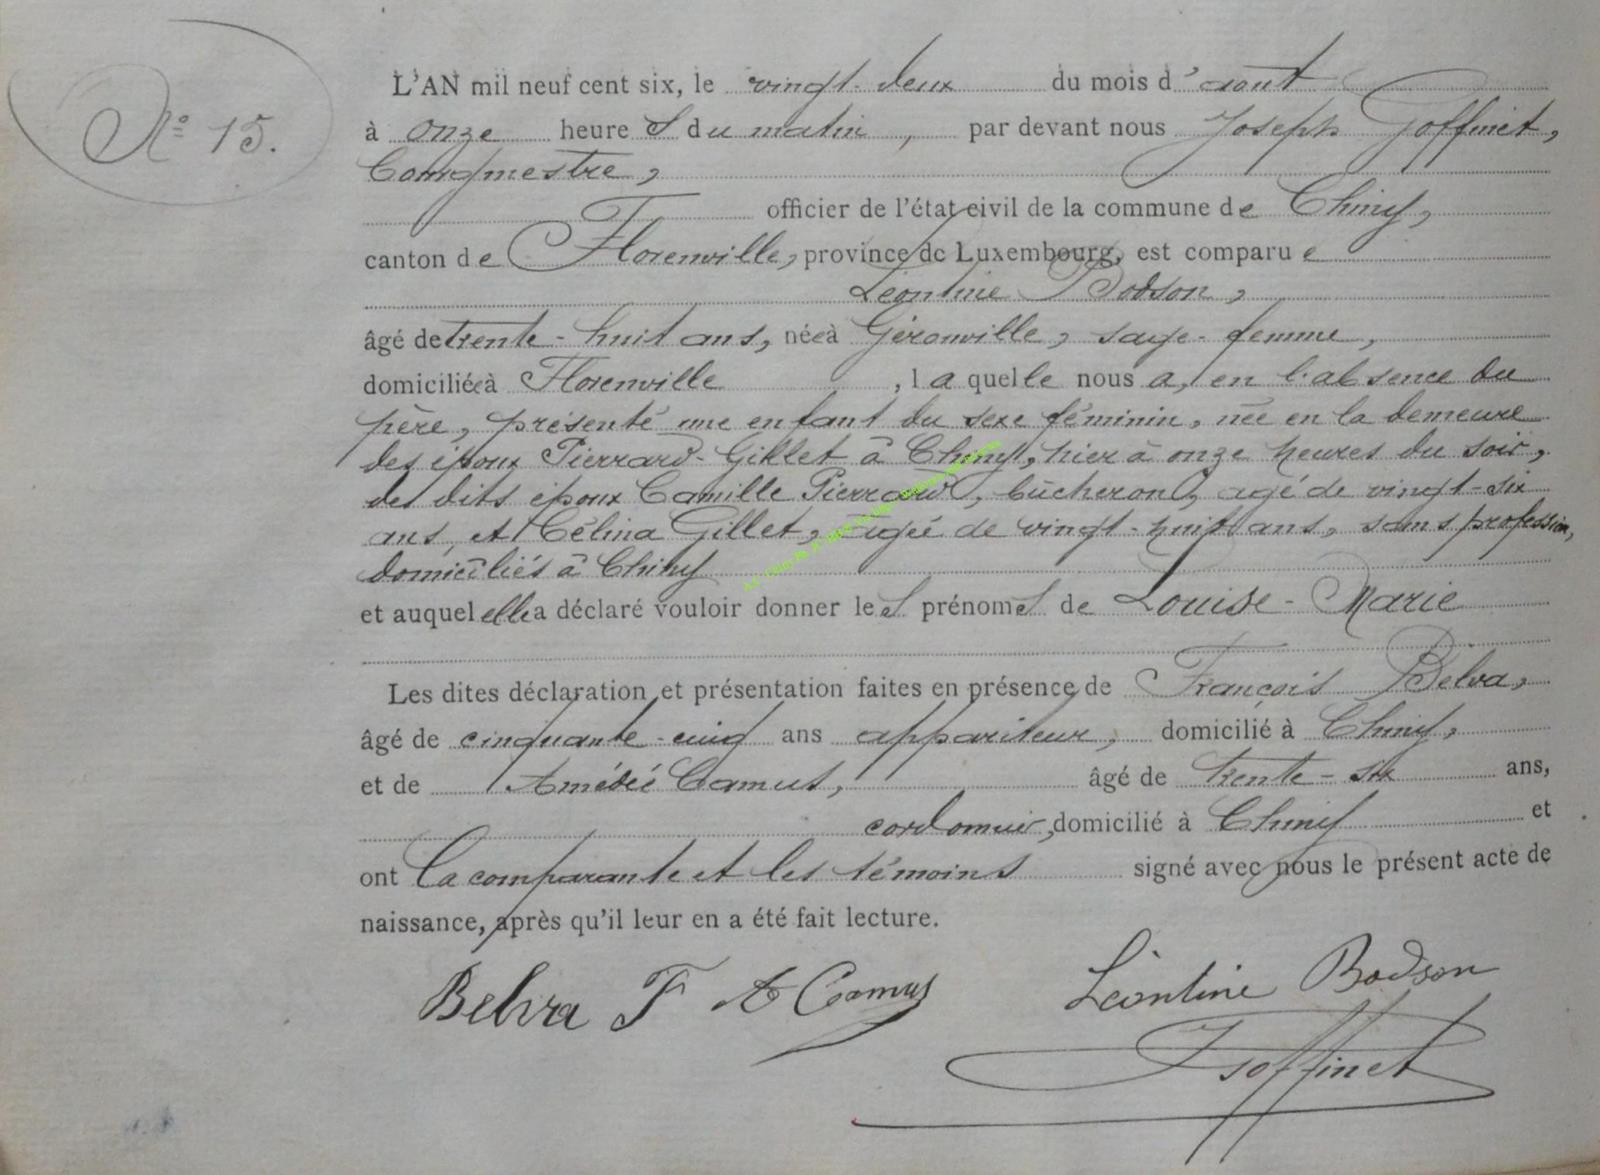 N° 15.
L'AN mil neuf cent six, le vingt-deux du mois d'août
à onze heureS du matin, par devant nous Joseph Goffinet,
Bourgmestre,
officier de l'état civil de la commune de Chiny,
canton de Florenville, province de Luxembourg, est comparue
Léontine Bodson,
âgé de trente-huit ans, née à Géronville, sage-femme,
domiciliée à Florenville, laquelle nous a, en l'absence du
père, présenté une enfant du sexe féminin, née en la demeure
des époux Pierrard-Gillet à Chiny, hier à onze heures du soir,
des dits époux Camille Pierrard, bûcheron, agé de vingt-six
ans, et Célina Gillet, agée de vingt-huit ans, sans profession,
domiciliés à Chiny
et auquel elle a déclaré vouloir donner leS prénomS de Louise-Marie
Les dites déclaration et présentation faites en présence de François Belva,
âgé de cinquante-cinq ans appariteur, domicilié à Chiny,
et de Amédée Camus, âgé de trente-six ans,
cordonnier, domicilié à Chiny et
ont la comparante et les témoins signé avec nous le présent acte de
naissance, après qu'il leur en a été fait lecture.
Belva F A Camus Léontine Bodson
J Goffinet